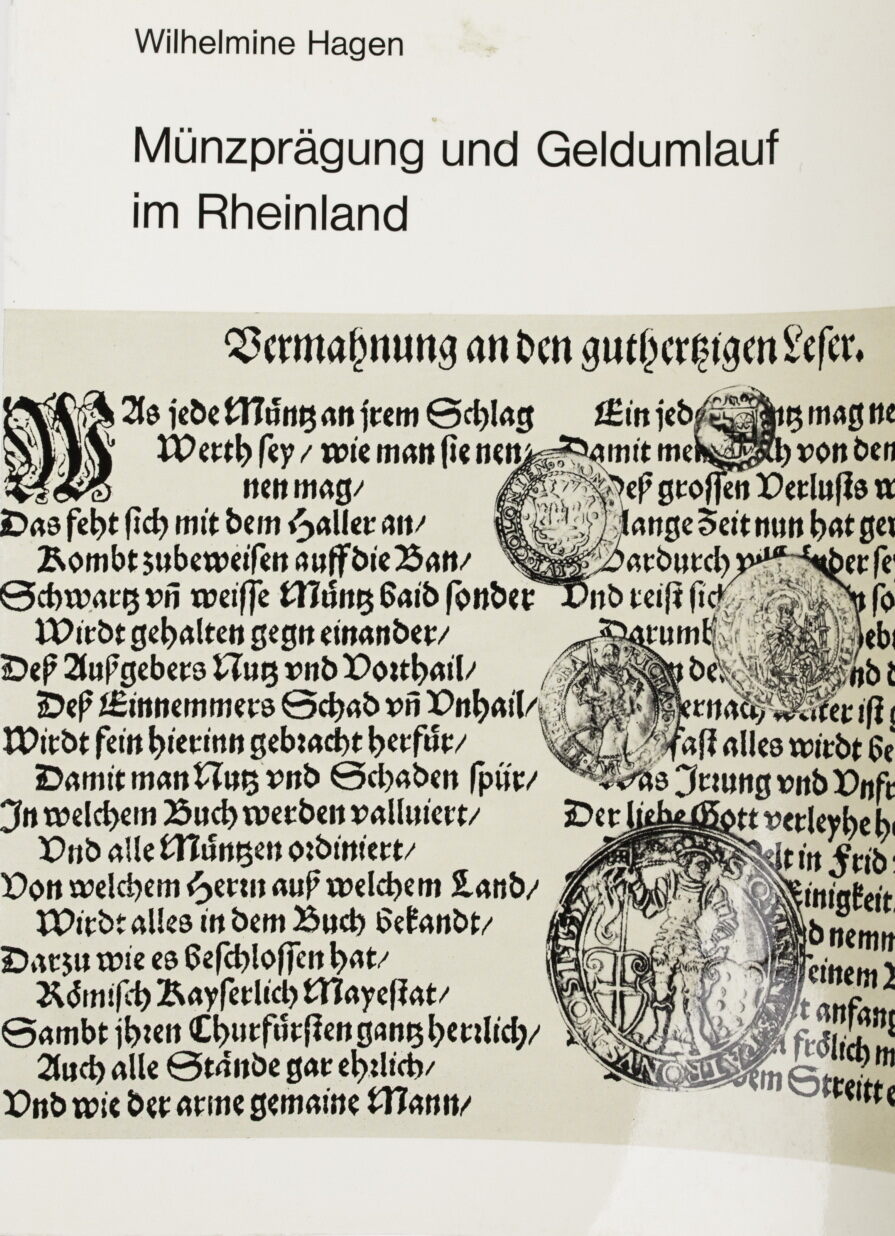 Wilhelmine Hagen
Münzprägung und Geldumlauf
im Rheinland
Vermahnung an den guthertzigen Leser.
WAs jede Müntz an jrem Schlag
Werth sey / wie man sie nen⸗
nen mag/
Das feht sich mit dem Haller an/
Kombt zubeweisen auff die Ban/
Schwartz vñ weisse Müntz baid sonder
Wirdt gehalten gegn einander/
Deß Außgebers Nutz vnd Vorthail/
Deß Einnemmers Schad vñ Vnhail/
Wirdt fein hierinn gebracht herfür/
Damit man Nutz vnd Schaden spür/
In welchem Buch werden valluiert/
Vnd alle Müntzen ordiniert/
Von welchem Herrn auß welchem Land/
Wirdt alles in dem Buch bekandt/
Darzu wie es beschlossen hat/
Römisch Kayserlich Mayestat/
Sambt jhren Churfürsten gantz herrlich/
Auch alle Stände gar ehrlich/
Vnd wie der arme gemaine Mann/
Ein jed mag
Damit von den
Deß grossen Verlusts
lange Zeit nun hat
Dardurch
Vnd reist
Darumb
ist
fast alles wirdt
Was Irrung vnd
Der liebe Gott verleyhe
in Frid
Einigkeit
einem
anfang
frölich
dem Streitt
1577